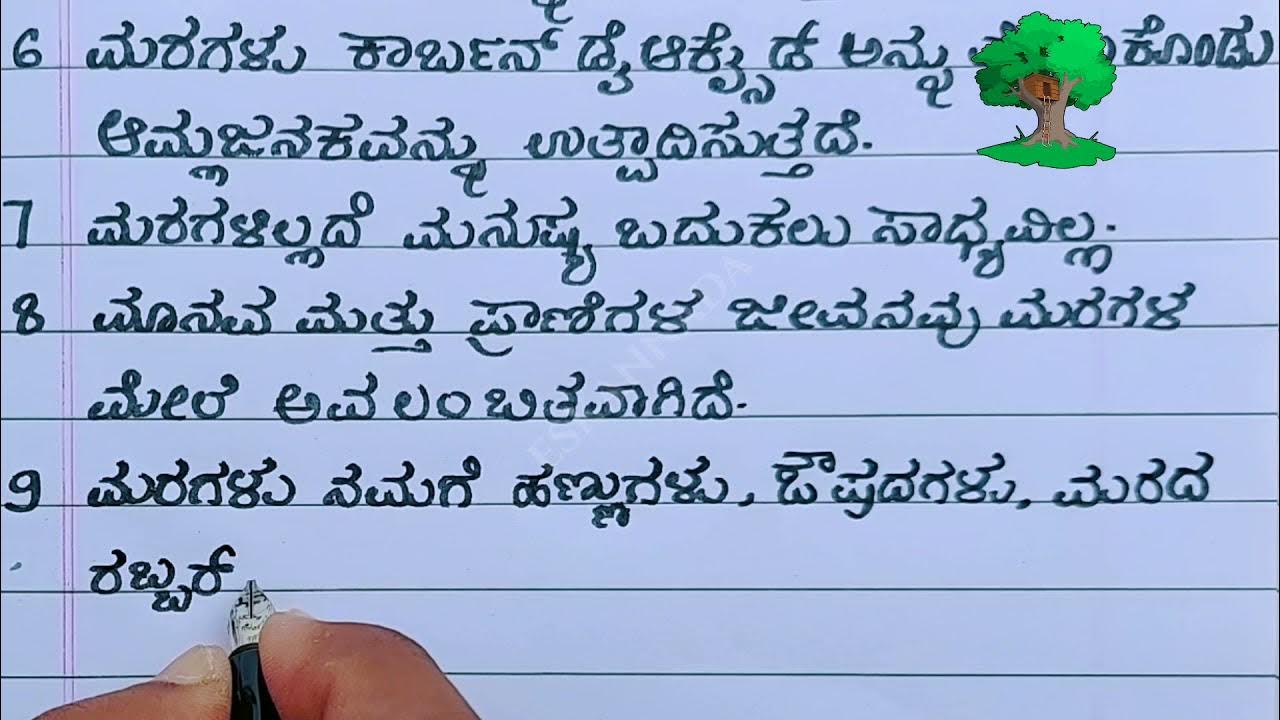 6 ಮರಗಳು ಕಾರ್ಬನ್ ಡೈಆಕ್ಸೈಡ್ ಅನ್ನು
ಆಮ್ಲಜನಕವನ್ನು ಉತ್ಪಾದಿಸುತ್ತದೆ.
7 ಮರಗಳಿಲ್ಲದೆ ಮನುಷ್ಯ ಬದುಕಲು ಸಾಧ್ಯವಿಲ್ಲ.
8 ಮಾನವ ಮತ್ತು ಪ್ರಾಣಿಗಳ ಜೀವನವು ಮರಗಳ
ಮೇಲೆ ಅವಲಂಬಿತವಾಗಿದೆ.
9 ಮರಗಳು ನಮಗೆ ಹಣ್ಣುಗಳು, ಔಷಧಗಳು, ಮರದ
ರಬ್ಬರ್